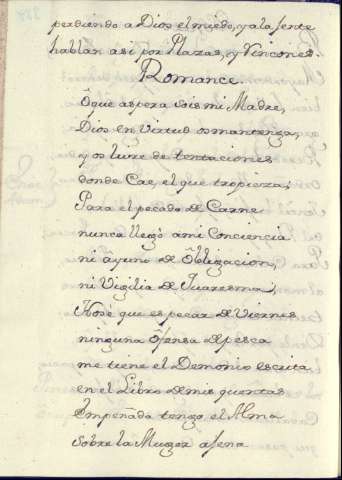 perdiendo a Dios el miedo, y a la Jente
hablar asi por Plazas, y Rincones.
Romance
O que aspera sois mi Madre,
Dios en Virtud os mantenga,
y os libre de tentaciones
donde Cae, el que tropieza;
Para el pecado de Carne
nunca llegó a mi Conciencia
ni ayuno de Obligacion,
ni Vigilia de Quaresma;
No sé que es pecar de Viernes
ninguna Ofensa de pesca
me tiene el Demonio escrita
en el Libro de mis quentas
Empeñada tengo el Alma
sobre la Muger ajena